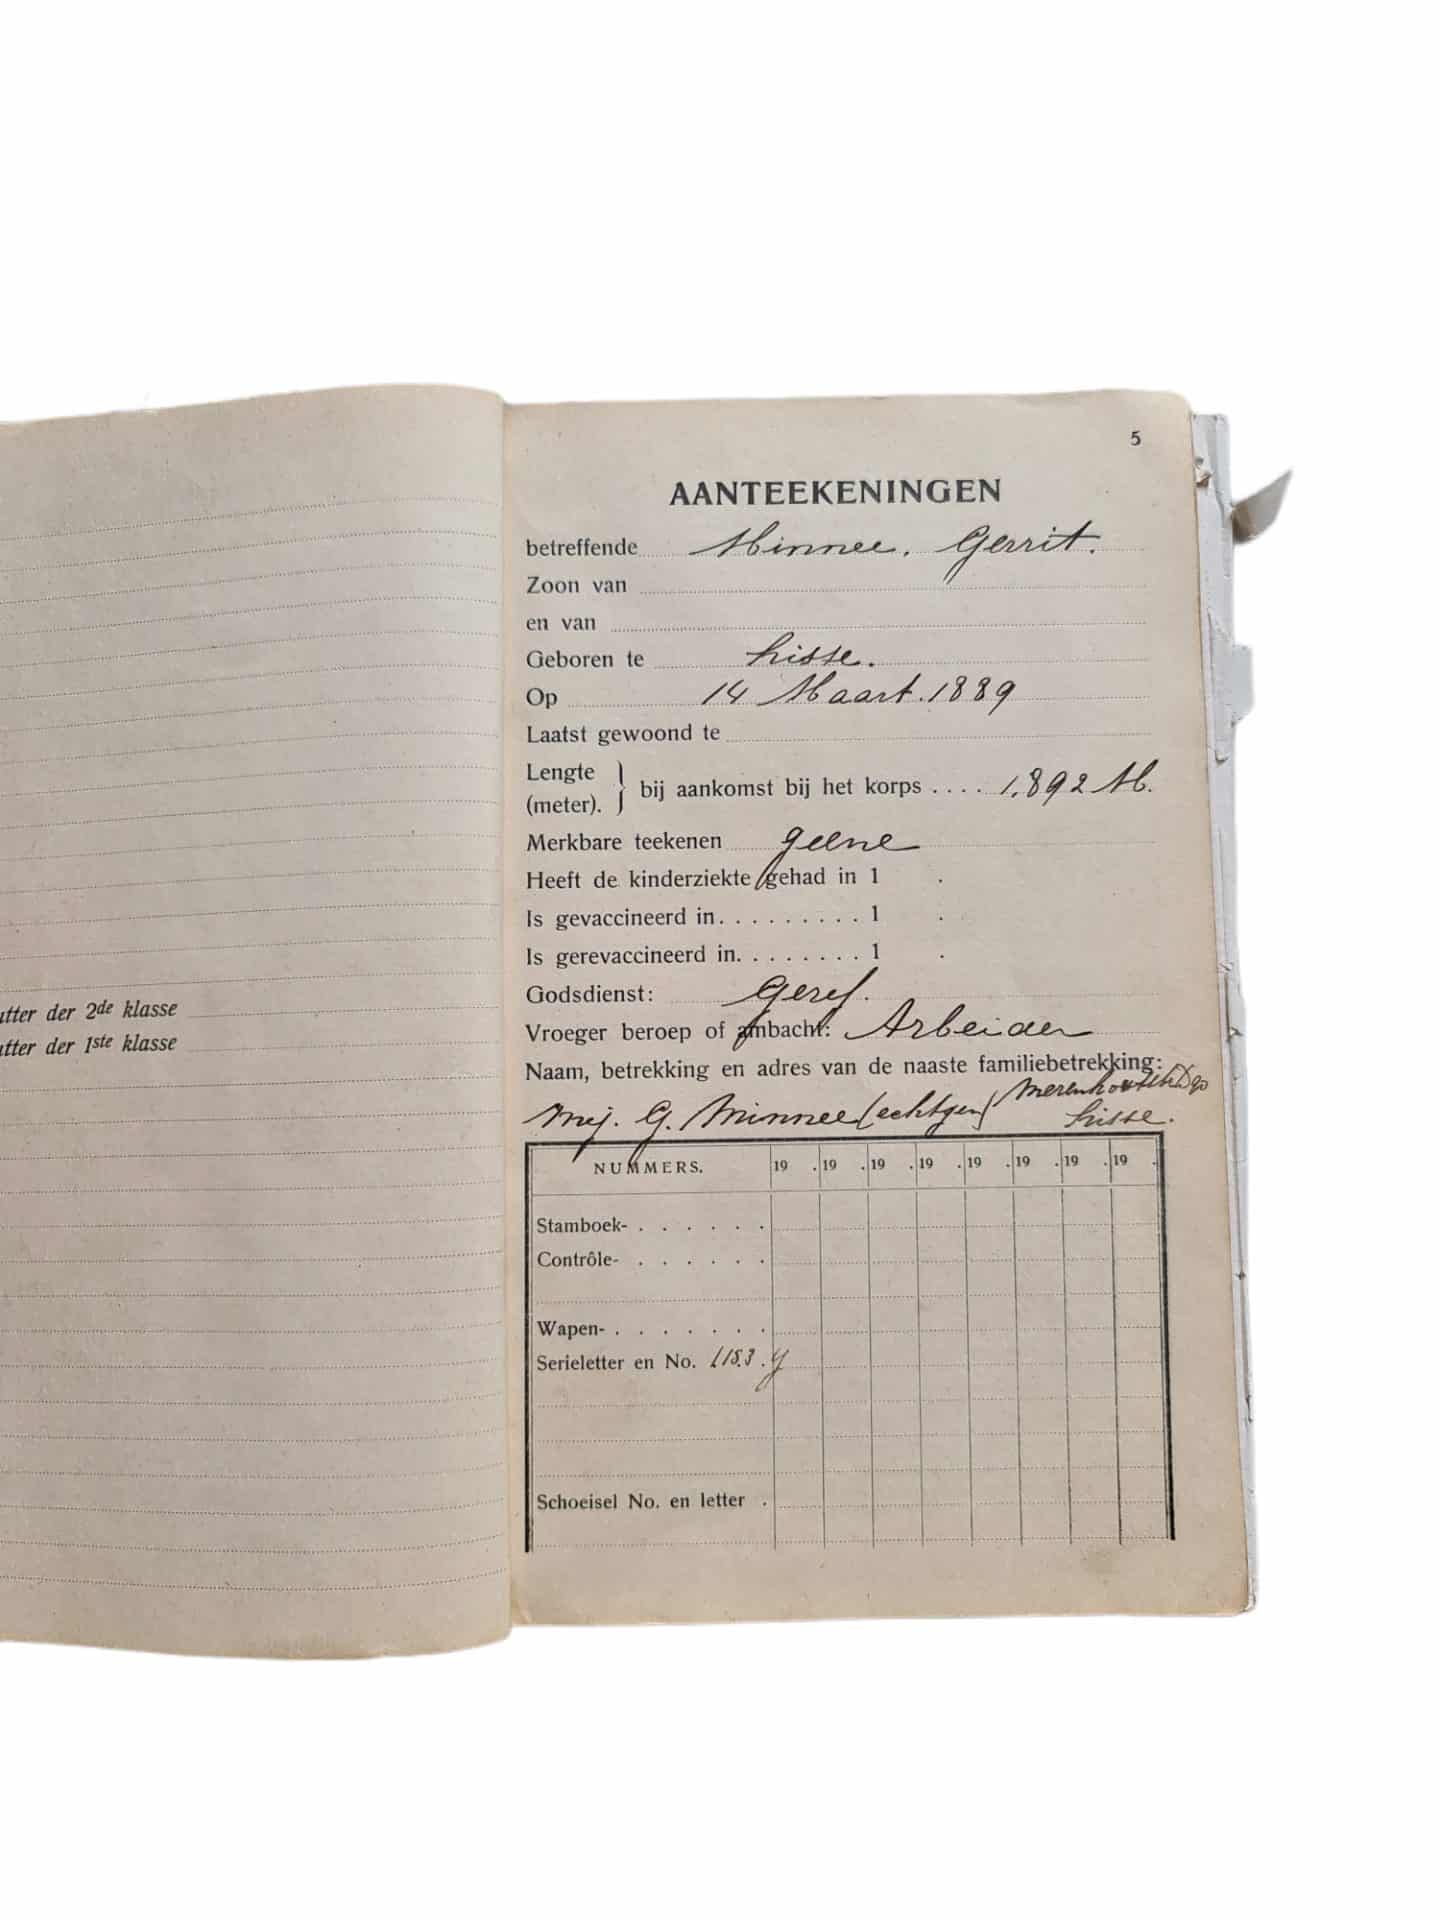 utter der 2de klasse
utter der 1ste klasse
5
AANTEEKENINGEN
betreffende Minnee. Gerrit.
Zoon van
en van
Geboren te Lisse.
Op 14 Maart. 1889
Laatst gewoond te
Lengte (meter). } bij aankomst bij het korps .... 1.892 M.
Merkbare teekenen geene
Heeft de kinderziekte gehad in 1 .
Is gevaccineerd in. . . . . . . . . 1 .
Is gerevaccineerd in. . . . . . . . 1 .
Godsdienst: Geref.
Vroeger beroep of ambacht: Arbeider
Naam, betrekking en adres van de naaste familiebetrekking:
Mej. G. Minnee (echtgen)
Lisse.
NUMMERS. 19 . 19 . 19 . 19 . 19 . 19 . 19 . 19 .
Stamboek- . . . . . .
Contrôle- . . . . . .
Wapen- . . . . . . .
Serieletter en No.
Schoeisel No. en letter .